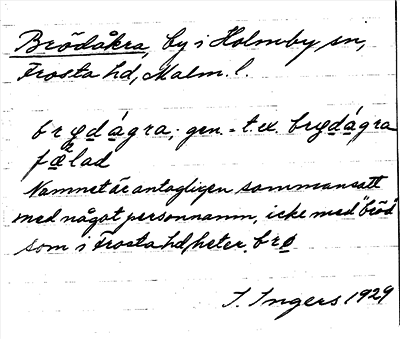 Brödåkra, by i Holmby sn,
Frosta hd, Malm. l.
brødágra; gen. = t.ex. brødágra
fælád
Namnet är antagligen sammansatt
med något personnamn, icke med "bröd"
som i Frosta hd heter brø
I. Ingers 1929